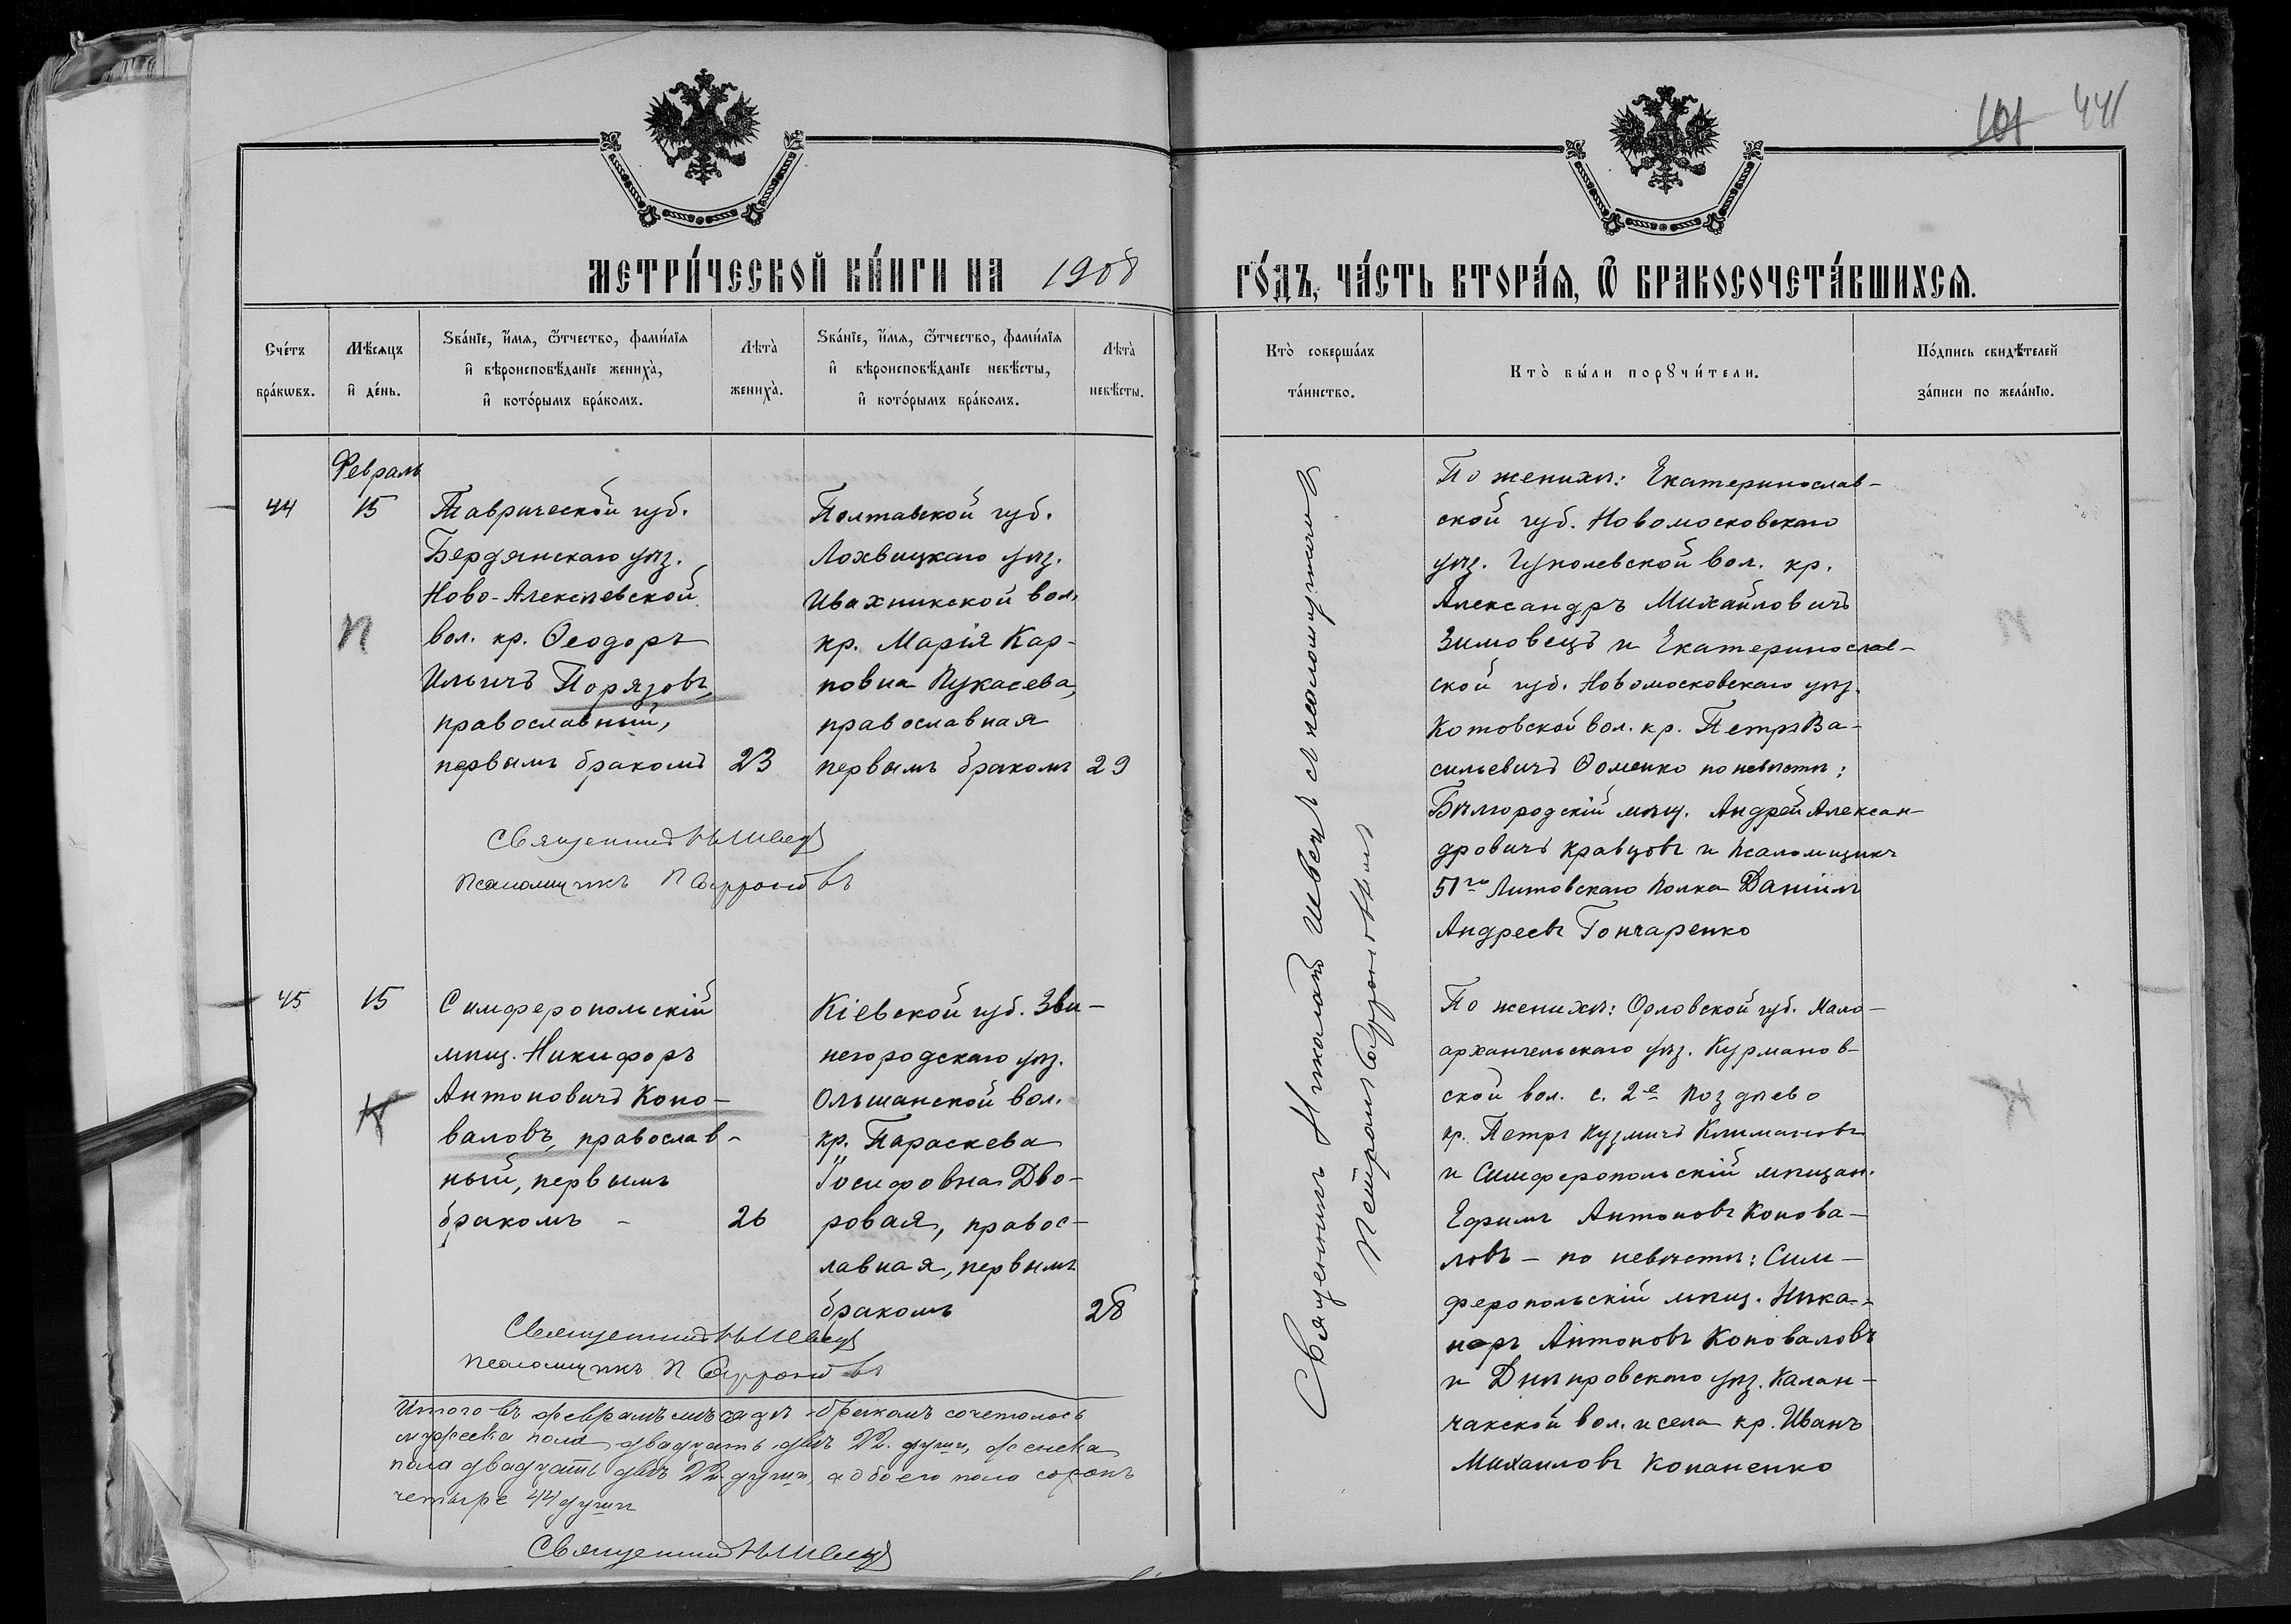 101 441
МЕТРИ́ЧЕСКОЙ КНИ́ГИ НА 1908 ГО́ДЪ, ЧА́СТЬ ВТОРА́Я, Ѿ БРАКОСОЧЕТА́ВШИХСѦ.
Сче́тъ
бра́кѡвъ.
Мѣ́сяцъ
и҆ де́нь.
Ѕва́нїе, и҆́мѧ, ѻ҆́тчество, фами́лїѧ
и҆ вѣроисповѣ́данїе жениха̀,
и҆ кото́рымъ бра́комъ.
Лѣта̀
жениха̀.
Ѕва́нїе, и҆́мѧ, ѻ҆́тчество, фами́лїѧ
и҆ вѣроисповѣ́данїе невѣ́сты,
и҆ кото́рымъ бра́комъ.
Лѣта̀
невѣ́сты.
Кто̀ соверша́лъ
та́инство.
Кто̀ бы́ли порꙋчи́тели.
По́дпись свидѣ́телей
за́писи по жела́нїю.
Февраль
44
15
П
Таврической губ.
Бердянскаго уѣз.
Ново-Алексѣевской
вол. кр. Ѳеодоръ
Ильичъ Порязовъ,
православный,
первымъ бракомъ 23
Полтавской губ.
Лохвицкаго уѣз.
Ивахникской вол.
кр. Марія Кар-
повна Лукасева,
православная
первымъ бракомъ 29
Священник Н Швец
Псаломщикъ П
Священникъ Николай Швецъ съ псаломщикомъ
Петромъ
По женихѣ: Екатеринослав-
ской губ. Новомосковскаго
уѣз. Гуполевской вол. кр.
Александръ Михайловичъ
Зимовецъ и Екатеринослав-
ской губ. Новомосковскаго уѣз.
Котовской вол. кр. Петръ Ва-
сильевичъ Ѳоменко по невѣстѣ:
Бѣлгородскій мѣщ. Андрей Алексан-
дровичъ Кравцовъ и псаломщикъ
51го Литовскаго полка Даніилъ
Андреевъ Гончаренко
45
15
К
Симферопольскій
мѣщ. Никифоръ
Антоновичъ Коно-
валовъ, православ-
ный, первымъ
бракомъ - 26
Кіевской губ. Зве-
негородскаго уѣз.
Ольшанской вол.
кр. Параскева
Іосифовна Дво-
ровая, правос-
лавная, первымъ
бракомъ 28
Священник Н Швец
Псаломщикъ П
По женихѣ: Орловской губ. Мало-
архангельскаго уѣз. Курманов-
ской вол. с. 2е Поздѣево
кр. Петръ Кузмичъ Климановъ
и Симферопольскій мѣщан.
Ефимъ Антоновъ Конова-
ловъ - по невѣстѣ: Сим-
феропольскій мѣщ. Ника-
норъ Антоновъ Коноваловъ
и Днѣпровскаго уѣз. Калан-
чакской вол. и села кр. Иванъ
Михаиловъ Копаненко
Итого въ февралѣ мѣсяцѣ бракомъ сочеталось
мужеска пола двадцать двѣ 22 души, женска
пола двадцать двѣ 22 души, а обоего пола сорокъ
четыре 44 души
Священник Н Швец